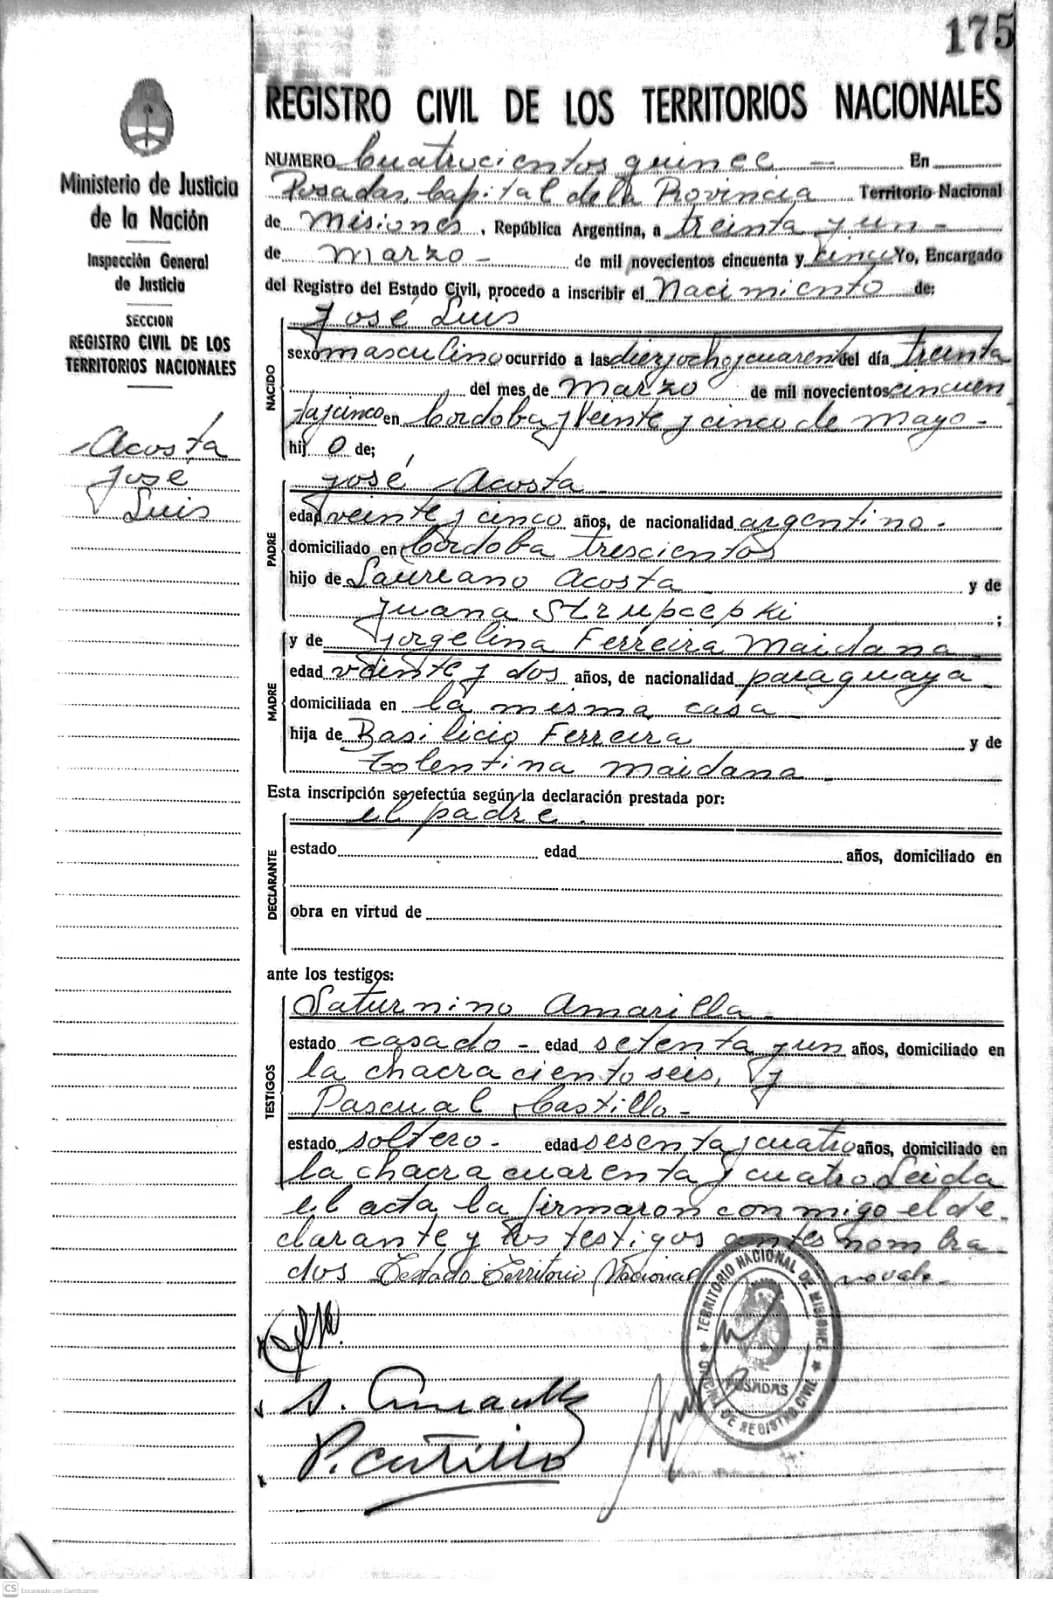 175
REGISTRO CIVIL DE LOS TERRITORIOS NACIONALES
Ministerio de Justicia
de la Nación
Inspección General
de Justicia
SECCION
REGISTRO CIVIL DE LOS
TERRITORIOS NACIONALES
Acosta
José
Luis
NUMERO Cuatrocientos quince — En
Posadas, Capital de la Provincia Territorio Nacional
de Misiones, República Argentina, a treinta y un -
de marzo - de mil novecientos cincuenta y cinco Yo, Encargado
del Registro del Estado Civil, procedo a inscribir el Nacimiento de:
NACIDO
José Luis
sexo masculino ocurrido a las diez y ocho y cuarent del día treinta
del mes de marzo de mil novecientos cincuen
ta y cinco en Cordoba y Veinte y cinco de mayo -
hij o de;
PADRE
José Acosta
edad veinte y cinco años, de nacionalidad argentino -
domiciliado en Cordoba trescientos
hijo de Laureano Acosta y de
Juana Strupcepki ;
MADRE
y de Jorgelina Ferreira Maidana
edad veinte y dos años, de nacionalidad paraguaya
domiciliada en la misma casa
hija de Basilicio Ferreira y de
Tolentina Maidana -
Esta inscripción se efectúa según la declaración prestada por:
DECLARANTE
el padre.
estado edad años, domiciliado en
obra en virtud de
ante los testigos:
TESTIGOS
Saturnino Amarilla -
estado casado - edad setenta y un años, domiciliado en
la chacra ciento seis, y
Pascual Castillo -
estado soltero - edad sesenta y cuatro años, domiciliado en
la chacra cuarenta y cuatro Leida
el acta la firmaron conmigo el de-
clarante y los testigos antes nombra
dos Testado Territorio Nacional no vale -
TERRITORIO NACIONAL DE MISIONES
POSADAS
OFICINA DE REGISTRO CIVIL
P. Castillo
CS Escaneado con CamScanner